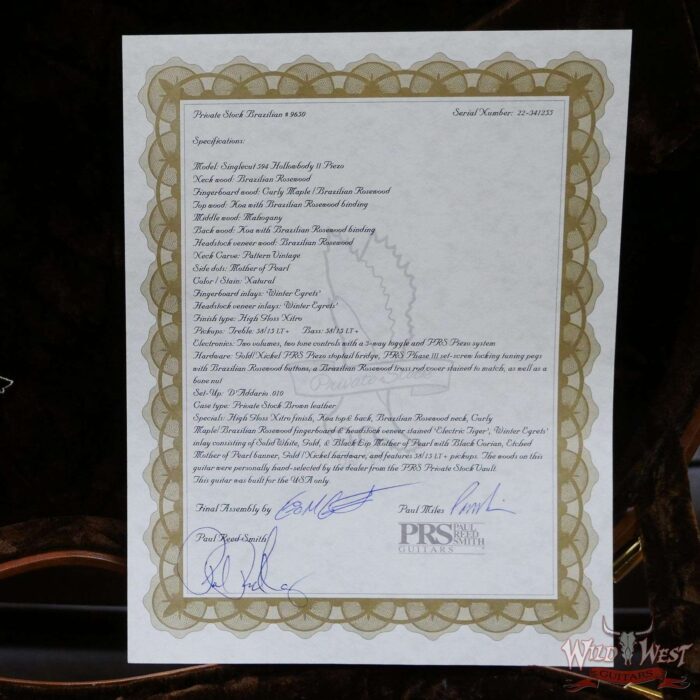 Private Stock Brazilian #9650 Serial Number: 22-341255
Specifications:
Model: Singlecut 594 Hollowbody II Piezo
Neck wood: Brazilian Rosewood
Fingerboard wood: Curly Maple/Brazilian Rosewood
Top wood: Koa with Brazilian Rosewood binding
Middle wood: Mahogany
Back wood: Koa with Brazilian Rosewood binding
Headstock veneer wood: Brazilian Rosewood
Neck Carve: Pattern Vintage
Side dots: Mother of Pearl
Color / Stain: Natural
Fingerboard inlays: 'Winter Egrets'
Headstock veneer inlays: 'Winter Egrets'
Finish type: High Gloss Nitro
Pickups: Treble: 58/15 LT+ Bass: 58/15 LT+
Electronics: Two volumes, two tone controls with a 3-way toggle and PRS Piezo system
Hardware: Gold/Nickel PRS Piezo stoptail bridge, PRS Phase III set-screw locking tuning pegs
with Brazilian Rosewood buttons, a Brazilian Rosewood truss rod cover stained to match, as well as a
bone nut
Set-Up: D'Addario .010
Case type: Private Stock Brown leather
Specials: High Gloss Nitro finish, Koa top & back, Brazilian Rosewood neck, Curly
Maple/Brazilian Rosewood fingerboard & headstock veneer stained 'Electric Tiger', 'Winter Egrets'
inlay consisting of Solid White, Gold, & Black Lip Mother of Pearl with Black Corian, Etched
Mother of Pearl banner, Gold/Nickel hardware, and features 58/15 LT+ pickups. The woods on this
guitar were personally hand-selected by the dealer from the PRS Private Stock Vault.
This guitar was built for the USA only.
Private Stock
Final Assembly by Paul Miles
Paul Reed Smith
PRS PAUL REED SMITH
GUITARS
WILD WEST
GUITARS